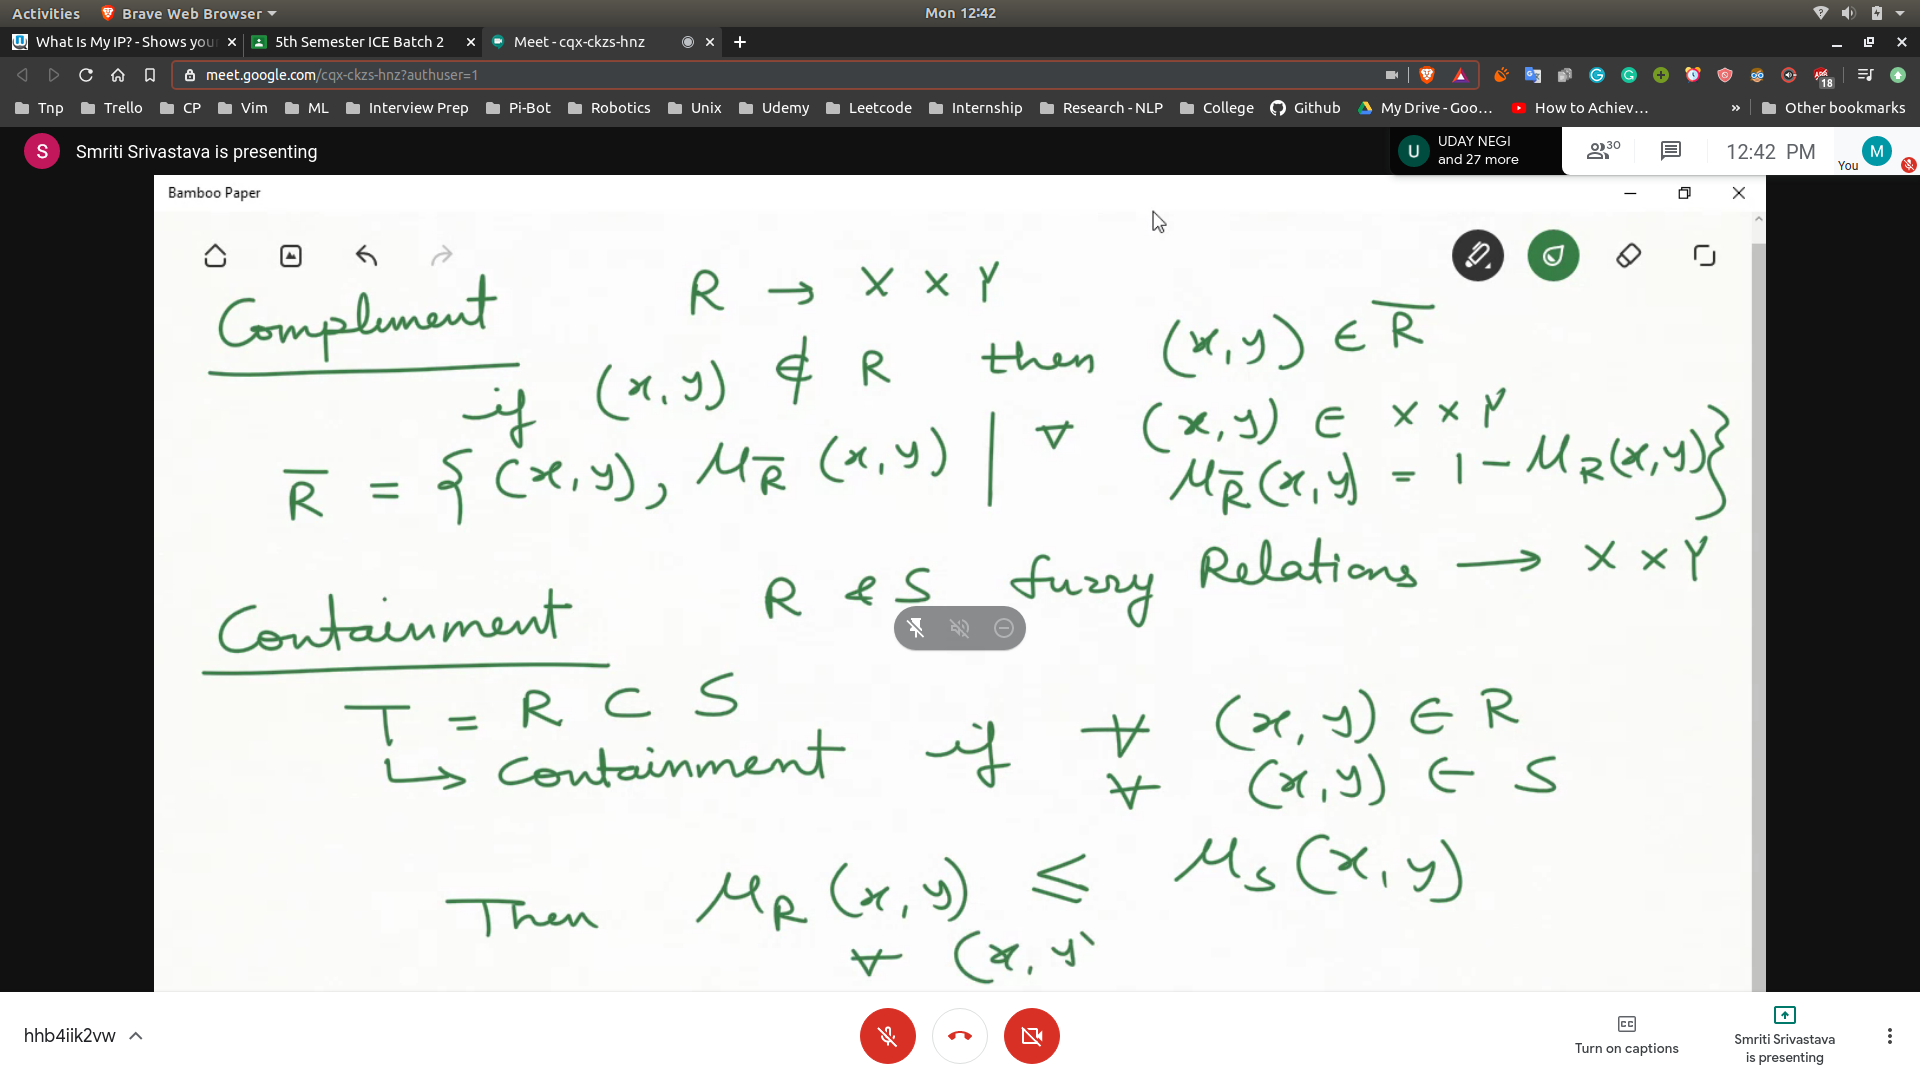 Activities Brave Web Browser Mon 12:42
What Is My IP? - Shows you 5th Semester ICE Batch 2 Meet - cqx-ckzs-hnz
meet.google.com/cqx-ckzs-hnz?authuser=1 18
Tnp Trello CP Vim ML Interview Prep Pi-Bot Robotics Unix Udemy Leetcode Internship Research - NLP College Github My Drive - Goo... How to Achiev... » Other bookmarks
S Smriti Srivastava is presenting U UDAY NEGI and 27 more 30 12:42 PM You M
Bamboo Paper
Complement R → X × Y
if (x,y) ∉ R then (x,y) ∈ R̅
R̅ = { (x,y), μR̅ (x,y) | ∀ (x,y) ∈ X × Y
μR̅(x,y) = 1 - μR(x,y)}
Containment R & S fuzzy Relations → X × Y
T = R ⊂ S
↳ Containment if ∀ (x,y) ∈ R
∀ (x,y) ∈ S
Then μR (x,y) ≤ μS (x,y)
∀ (x,y)
hhb4iik2vw Turn on captions Smriti Srivastava is presenting